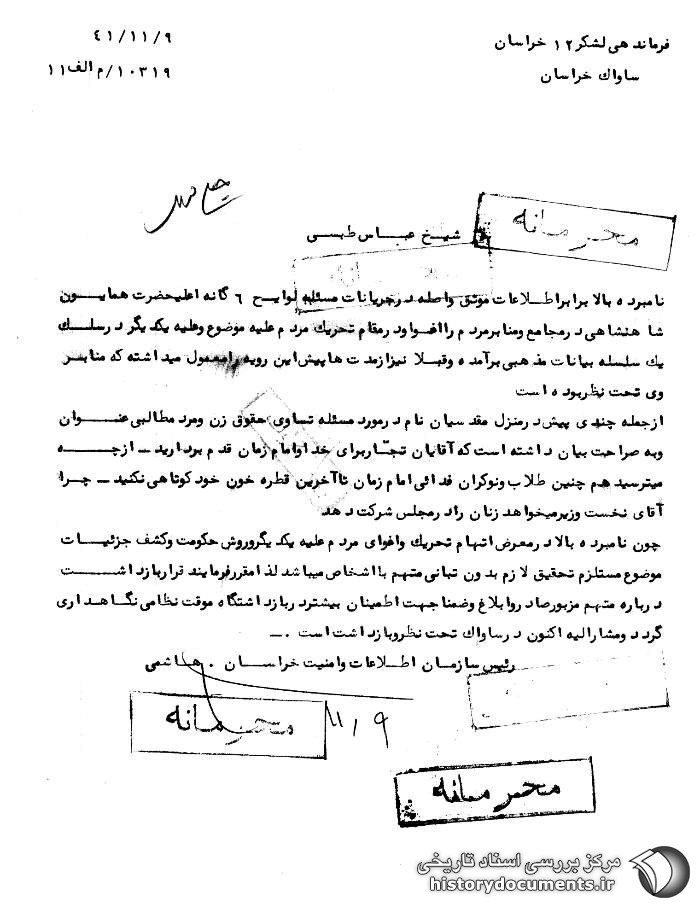 فرماندهی لشگر ۱۲ خراسان
ساواك خراسان
۴۱/۱۱/۹
۱۰۳۱۹/م الف ۱۱
محرمانه
شیخ عباس طبسی
نامبرده بالا برابر اطلاعات موثق واصله در جریانات مسئله لوایح ۶ گانه اعلیحضرت همایون
شاهنشاهی در مجامع و منابر مردم را اغوا و در مقام تحریك مردم علیه موضوع و علیه یکدیگر در سلك
یك سلسله بیانات مذهبی برآمده و قبلا نیز از مدت ها پیش این رویه را معمول میداشته که منابر
وی تحت نظر بوده است
از جمله چندی پیش در منزل مقدسیان نام در مورد مسئله تساوی حقوق زن و مرد مطالبی عنوان
و به صراحت بیان داشته است که آقایان تجّار برای خدا و امام زمان قدم بردارید ــ از چه
میترسید هم چنین طلاب و نوکران فدائی امام زمان تا آخرین قطره خون خود کوتاهی نکنید ــ چرا
آقای نخست وزیر میخواهد زنان را در مجلس شرکت دهد
چون نامبرده بالا در معرض اتهام تحریك و اغوای مردم علیه یکدیگر و روش حکومت و کشف جزئیات
موضوع مستلزم تحقیق لازم بدون تبانی متهم با اشخاص میباشد لذا مقرر فرمایند قرار بازداشت
درباره متهم مزبور صادر و ابلاغ و ضمنا جهت اطمینان بیشتر در بازداشتگاه موقت نظامی نگاهداری
گردد و مشارالیه اکنون در ساواك تحت نظر و بازداشت است . ــ
رئیس سازمان اطلاعات و امنیت خراسان . هاشمی
۱۱/۹
محرمانه
محرمانه
مرکز بررسی اسناد تاریخی
historydocuments.ir